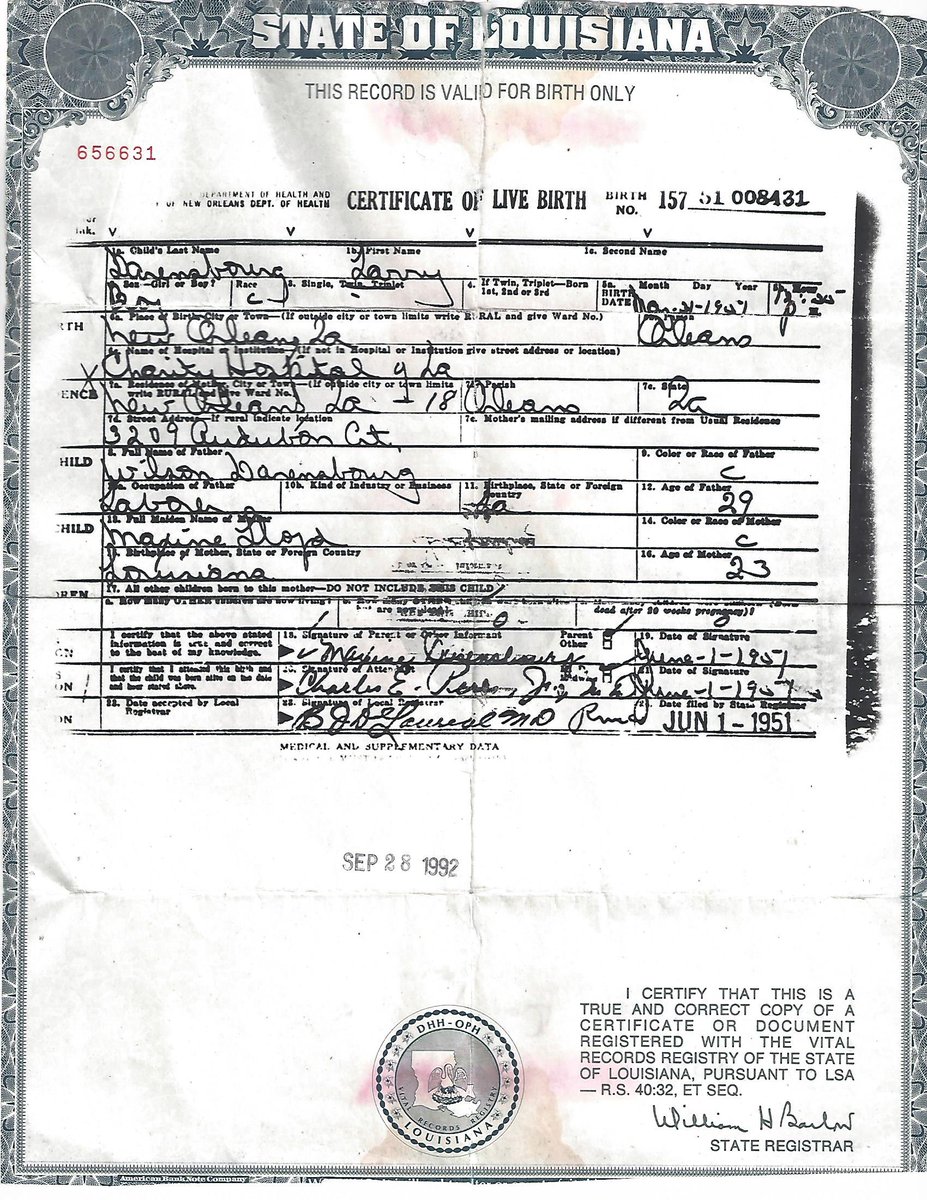 STATE OF LOUISIANA
THIS RECORD IS VALID FOR BIRTH ONLY
656631
DEPARTMENT OF HEALTH AND
OF NEW ORLEANS DEPT. OF HEALTH
CERTIFICATE OF LIVE BIRTH
BIRTH NO. 157 51 008431
1a. Child's Last Name 1b. First Name 1c. Second Name
Darensbourg Larry
Sex—Girl or Boy? Race 3. Single, Twin, Triplet 4. If Twin, Triplet—Born 1st, 2nd or 3rd 5a. BIRTH DATE Month Day Year 5b. Hour
Boy C
6a. Place of Birth—City or Town—(If outside city or town limits write RURAL and give Ward No.)
RTH New Orleans La Orleans
Name of Hospital or Institution (If not in Hospital or Institution give street address or location)
Charity Hospital of La
7a. Residence of Mother, City or Town—(If outside city or town limits write RURAL and give Ward No.) Parish 7c. State
ENCE New Orleans La - 18 Orleans La
7d. Street Address—If rural indicate location 7e. Mother's mailing address if different from Usual Residence
3209 Audubon Crt.
HILD 8. Full Name of Father 9. Color or Race of Father
Wilson Darensbourg C
Occupation of Father 10b. Kind of Industry or Business 11. Birthplace, State or Foreign Country 12. Age of Father
Laborer La 29
CHILD 13. Full Maiden Name of Mother 14. Color or Race of Mother
Maxine C
Birthplace of Mother, State or Foreign Country 16. Age of Mother
Louisiana 23
17. All other children born to this mother—DO NOT INCLUDE THIS CHILD
a. How many OTHER children are now living?
dead after 20 weeks pregnancy)?
I certify that the above stated information is true and correct to the best of my knowledge.
18. Signature of Parent or Other Informant Parent Other 19. Date of Signature
Maxine June-1-1951
I certify that I attended this birth and that the child was born alive on the date and hour stated above.
Signature of Date of Signature
Charles E. June-1-1951
22. Date accepted by Local Registrar 23. Signature of Local Registrar Date filed by State Registrar
JUN 1 - 1951
MEDICAL AND SUPPLEMENTARY DATA
SEP 28 1992
I CERTIFY THAT THIS IS A
TRUE AND CORRECT COPY OF A
CERTIFICATE OR DOCUMENT
REGISTERED WITH THE VITAL
RECORDS REGISTRY OF THE STATE
OF LOUISIANA, PURSUANT TO LSA
— R.S. 40:32, ET SEQ.
DHH-OPH
VITAL RECORDS REGISTRY
LOUISIANA
William H Barlow
STATE REGISTRAR
American Bank Note Company